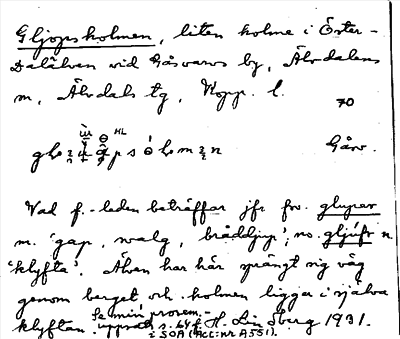 Gljopsholmen, liten holme i Öster-
Dalälven vid Gåsvarvs by, Älvdalens
m, Älvdals tg, Kopp. l.
70
HL
Gåsv.
Vad f.-leden beträffar jfr fvn. gluper
m. 'gap, svalg, bråddjup'; no. gljúfr n.
'klyfta'. Älven har här sprängt sig väg
genom berget, och holmen ligger i själva
klyftan. Se min prosem.-
uppsats s. 64 f. H. Lindberg 1931.
= SOA (Acc: nr A551).